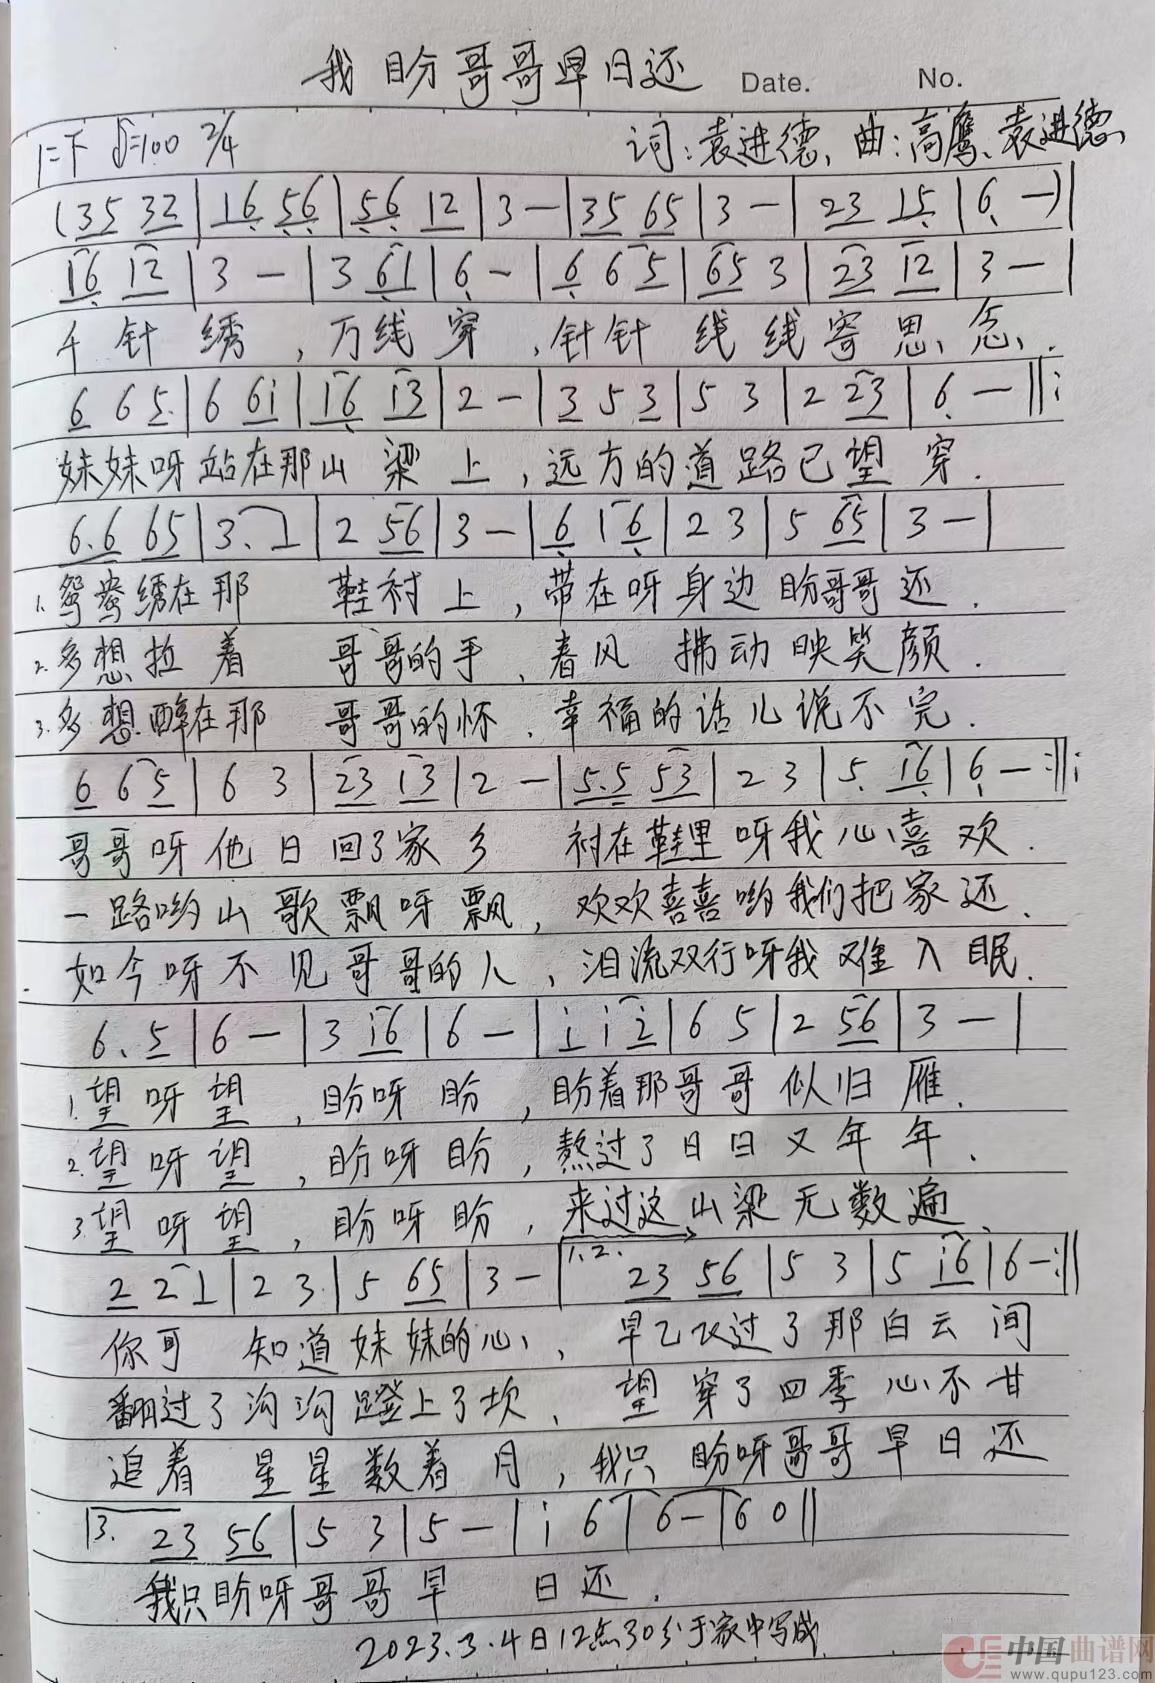 我盼哥哥早日还 Date. No.
1=F ♩=100 2/4 词:袁进德、曲:高鹰、袁进德、
(35 32|16 56|56 12|3 —|35 65|3 —|23 15|6 —)|
16 12|3 —|3 61|6 —|6 6 5|65 3|23 12|3 —|
千针绣,万线穿,针针线线寄思念.
6 6 5.|6 6i|16 13|2 —|3 5 3|5 3|2 23|6 —‖:
妹妹呀站在那山梁上,远方的道路已望穿.
6.6 65|3. 1|2 56|3 —|6 1 6|2 3|5 65|3 —|
1.鸳鸯绣在那鞋衬上,带在呀身边盼哥哥还.
2.多想拉着哥哥的手,春风拂动映笑颜.
3.多想醉在那哥哥的怀、幸福的话儿说不完.
6 6 5|6 3|23 13|2 —|5.5 53|2 3|5. 16|6 —:‖:
哥哥呀他日回了家乡 衬在鞋里呀我心喜欢.
一路哟山歌飘呀飘,欢欢喜喜哟我们把家还.
如今呀不见哥哥的人,泪流双行呀我难入眠.
6. 5|6 —|3 i6|6 —|i i 2|6 5|2 56|3 —|
1.望呀望,盼呀盼,盼着那哥哥似归雁.
2.望呀望,盼呀盼,熬过了日日又年年.
3.望呀望,盼呀盼,来过这山梁无数遍
2 2 1|2 3.|5 65|3 —|1.2. 23 56|5 3|5 i6|6 —:‖
你可知道妹妹的心,早已飞过了那白云间
翻过了沟沟蹬上了坎、望穿了四季心不甘
追着星星数着月,我只盼呀哥哥早日还
|3. 23 56|5 3|5 —|i 6|6 —|6 0‖
我只盼呀哥哥早日还.
2023.3.4日12点30分于家中写成
中国曲谱网
www.qupu123.com